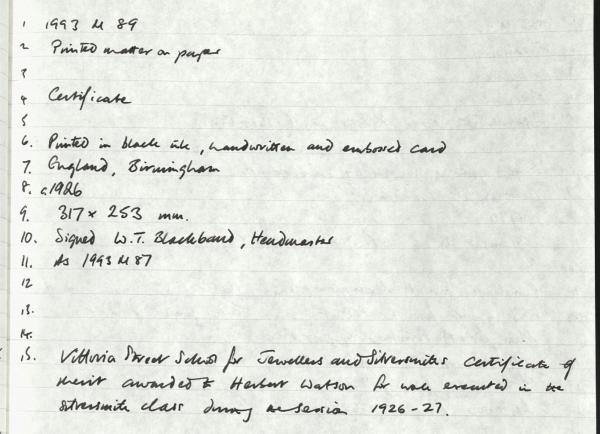 1 1993 M 89
2 Printed matter on paper
3
4 Certificate
5
6. Printed in black ink, handwritten and embossed card
7. England, Birmingham
8. c1926
9. 317 x 253 mm.
10. Signed W.T. Blackband, Headmaster
11. As 1993 M 87
12
13.
14.
15. Vittoria Street School for Jewellers and Silversmiths Certificate of
Merit awarded to Herbert Watson for work executed in the
silversmiths class during the session 1926-27.